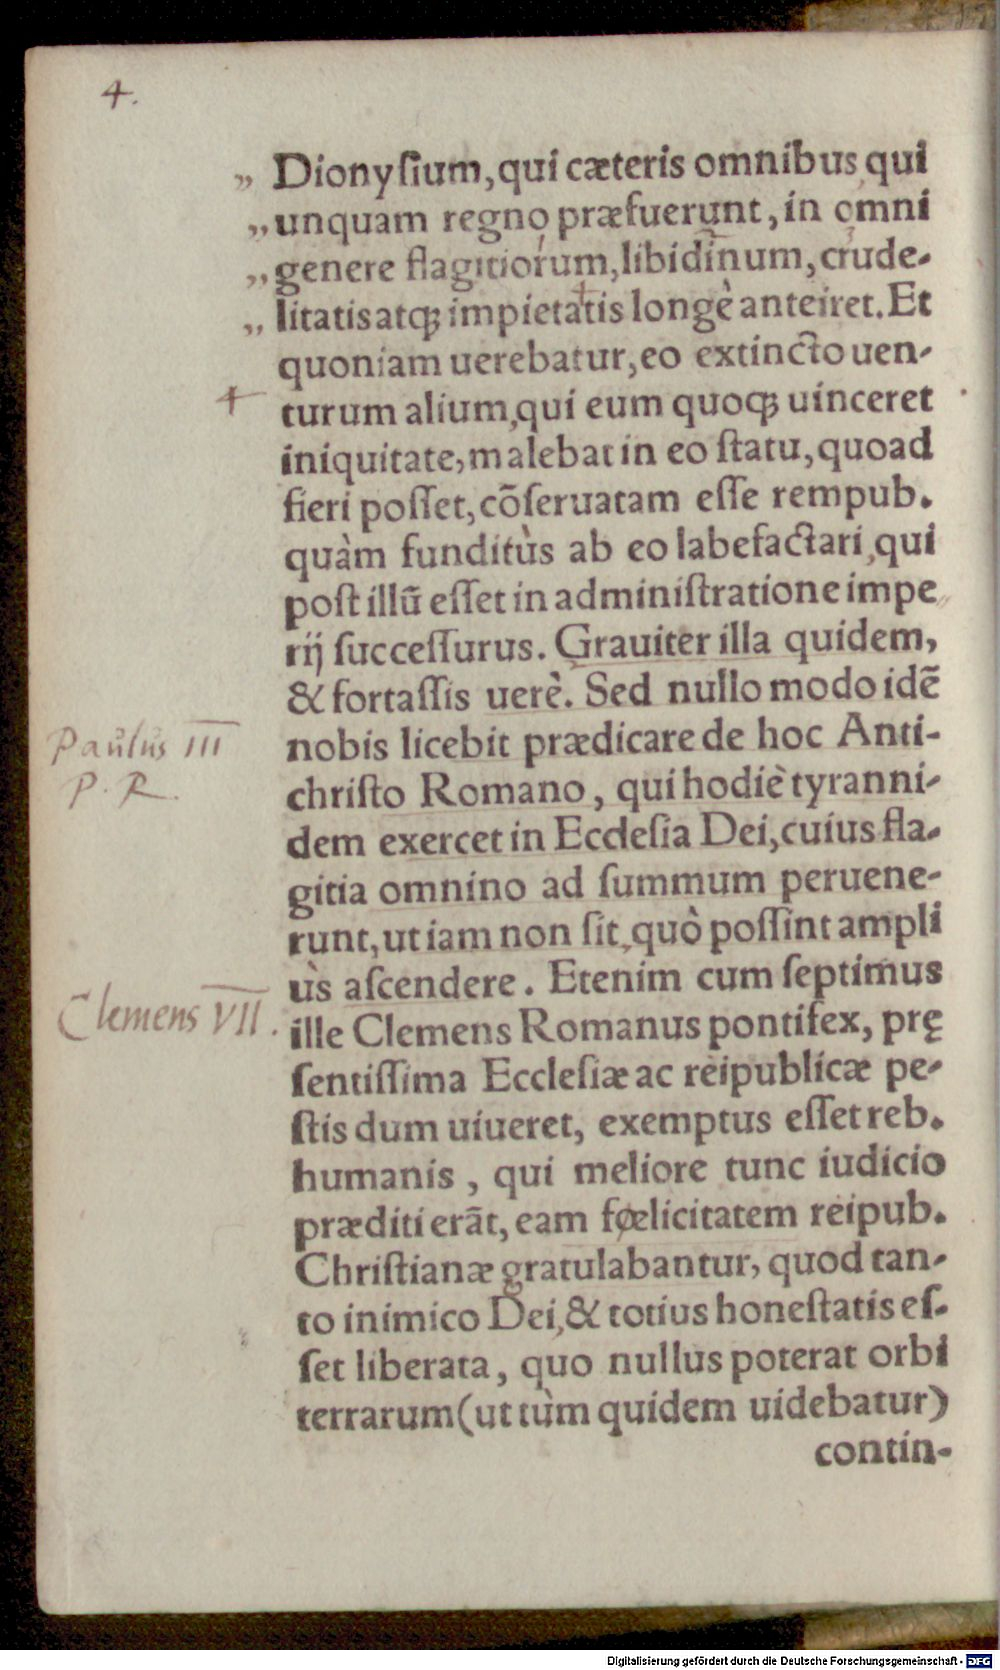 4.
„ Dionyſium, qui cæteris omnibus qui
„ unquam regno præfuerunt, in omni
„ genere flagitiorum, libidinum, crude-
„ litatis atqꝫ impietatis longè anteiret. Et
quoniam uerebatur, eo extincto uen-
turum alium, qui eum quoqꝫ uinceret
iniquitate, malebat in eo ſtatu, quoad
fieri poſſet, cõſeruatam eſſe rempub.
quàm funditùs ab eo labefactari, qui
poſt illũ eſſet in adminiſtratione impe
rij ſucceſſurus. Grauiter illa quidem,
& fortaſſis uerè. Sed nullo modo idẽ
Paulus III
nobis licebit prædicare de hoc Anti-
P. R.
chriſto Romano, qui hodiè tyranni-
dem exercet in Eccleſia Dei, cuius fla-
gitia omnino ad ſummum peruene-
runt, ut iam non ſit, quò poſſint ampli
ùs aſcendere. Etenim cum ſeptimus
Clemens VII.
ille Clemens Romanus pontifex, prę
ſentiſſima Eccleſiæ ac reipublicæ pe-
ſtis dum uiueret, exemptus eſſet reb.
humanis, qui meliore tunc iudicio
præditi erãt, eam fœlicitatem reipub.
Chriſtianæ gratulabantur, quod tan-
to inimico Dei, & totius honeſtatis eſ-
ſet liberata, quo nullus poterat orbi
terrarum (ut tùm quidem uidebatur)
contin-
Digitalisierung gefördert durch die Deutsche Forschungsgemeinschaft - DFG